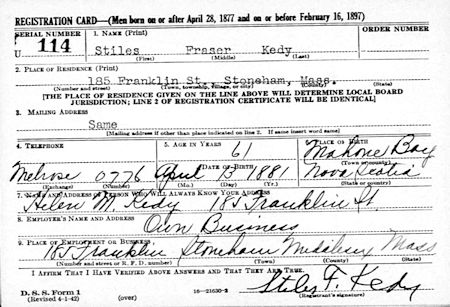 REGISTRATION CARD—(Men born on or after April 28, 1877 and on or before February 16, 1897)
SERIAL NUMBER
U 114
1. NAME (Print)
Stiles Fraser Kedy
(First) (Middle) (Last)
2. PLACE OF RESIDENCE (Print)
185 Franklin St., Stoneham, Mass.
(Number and street) (Town, township, village, or city) (County) (State)
[THE PLACE OF RESIDENCE GIVEN ON THE LINE ABOVE WILL DETERMINE LOCAL BOARD
JURISDICTION; LINE 2 OF REGISTRATION CERTIFICATE WILL BE IDENTICAL]
3. MAILING ADDRESS
Same
[Mailing address if other than place indicated on line 2. If same insert word same]
4. TELEPHONE
5. AGE IN YEARS
61
6. PLACE OF BIRTH
Mahone Bay
(Town or county)
DATE OF BIRTH
Melrose 0776 April 13 1881 Nova Scotia
(Exchange) (Number) (Mo.) (Day) (Yr.) (State or country)
7. NAME AND ADDRESS OF PERSON WHO WILL ALWAYS KNOW YOUR ADDRESS
Helen M. Kedy 185 Franklin St
8. EMPLOYER'S NAME AND ADDRESS
Own Business
9. PLACE OF EMPLOYMENT OR BUSINESS
185 Franklin Stoneham Mass
(Number and street or R. F. D. number) (Town) (County) (State)
I AFFIRM THAT I HAVE VERIFIED ABOVE ANSWERS AND THAT THEY ARE TRUE.
Stiles F. Kedy
D. S. S. Form 1
(Revised 4-1-42) (over) 16—21630-2 (Registrant's signature)